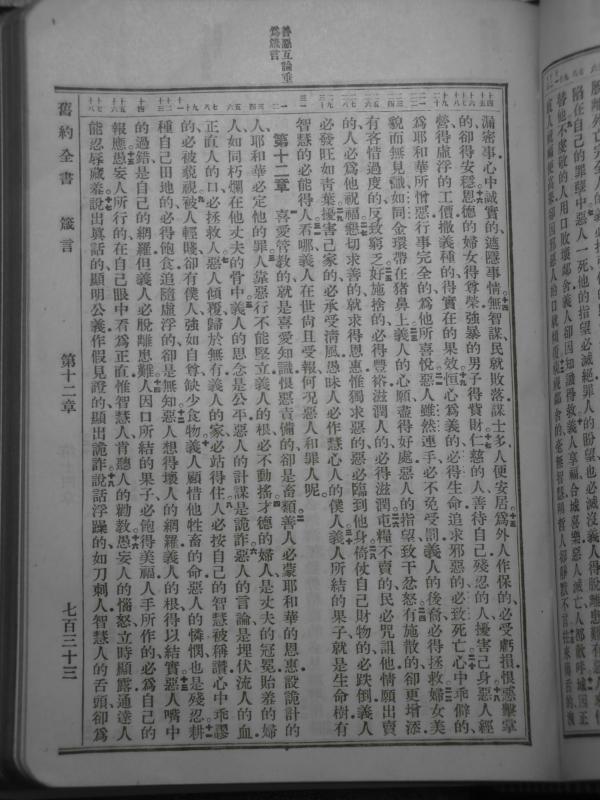 善惡互論垂
為箴言
漏密事心中誠實的遮隱事情無智謀民就敗落謀士多人便安居為外人作保的必受虧損恨惡擊掌
的卻得安穩恩德的婦女得尊榮強暴的男子得貲財仁慈的人善待自己殘忍的人擾害己身惡人經
營得虛浮的工價撒義種的得實在的果效恒心為義的必得生命追求邪惡的必致死亡心中乖僻的
為耶和華所憎惡行事完全的為他所喜悅惡人雖然連手必不免受罰義人的後裔必得拯救婦女美
貌而無見識如同金環帶在豬鼻上義人的心願盡得好處惡人的指望致干忿怒有施散的卻更增添
有吝惜過度的反致窮乏好施捨的必得豐裕滋潤人的必得滋潤屯糧不賣的民必咒詛他情願出賣
的人必為他祝福懇切求善的就求得恩惠惟獨求惡的惡必臨到他身倚仗自己財物的必跌倒義人
必發旺如青葉擾害己家的必承受清風愚昧人必作慧心人的僕人義人所結的果子就是生命樹有
智慧的必能得人看哪義人在世尚且受報何況惡人和罪人呢
第十二章 喜愛管教的就是喜愛知識恨惡責備的卻是畜類善人必蒙耶和華的恩惠設詭計的
人耶和華必定他的罪人靠惡行不能堅立義人的根必不動搖才德的婦人是丈夫的冠冕貽羞的婦
人如同朽爛在他丈夫的骨中義人的思念是公平惡人的計謀是詭詐惡人的言論是埋伏流人的血
正直人的口必拯救人惡人傾覆歸於無有義人的家必站得住人必按自己的智慧被稱讚心中乖謬
的必被藐視被人輕賤卻有僕人強如自尊缺少食物義人顧惜他牲畜的命惡人的憐憫也是殘忍耕
種自己田地的必得飽食追隨虛浮的卻是無知惡人想得壞人的網羅義人的根得以結實惡人嘴中
的過錯是自己的網羅但義人必脫離患難人因口所結的果子必飽得美福人手所作的必為自己的
報應愚妄人所行的在自己眼中看為正直惟智慧人肯聽人的勸教愚妄人的惱怒立時顯露通達人
能忍辱藏羞說出真話的顯明公義作假見證的顯出詭詐說話浮躁的如刀刺人智慧人的舌頭卻為
舊約全書 箴言 第十二章 七百三十三